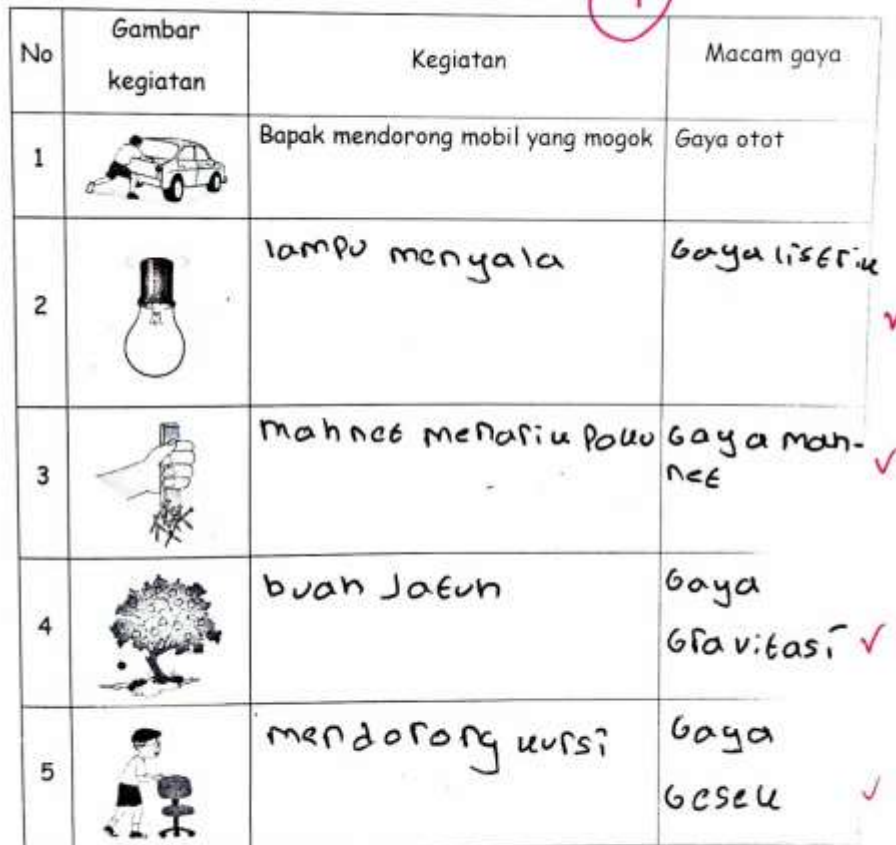 No
Gambar
kegiatan
Kegiatan
Macam gaya
1
Bapak mendorong mobil yang mogok
Gaya otot
2
lampu menyala
Gaya listrik
3
mahnet menarik paku
Gaya mah-
net
4
buah Jatuh
Gaya
Gravitasi
5
mendorong kursi
Gaya
Gesek